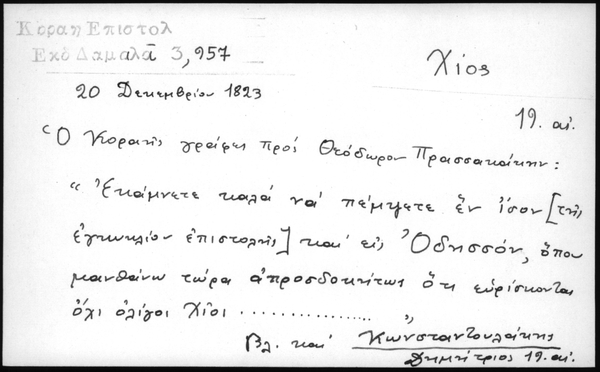 Κοραη Επιστολ
Εκδ Δαμαλᾶ 3, 957
Χίος
20 Δεκεμβρίου 1823
19. αι.
Ὁ Κοραῆς γράφει πρός Θεόδωρον Πρασσακάκην:
“ Ἐκάμνετε καλά νά πέμψετε ἕν ἴσον [τῆς
ἐγκυκλίου ἐπιστολῆς] καί εἰς Ὀδησσόν, ὅπου
μανθάνω τώρα ἀπροσδοκήτως ὅτι εὑρίσκονται
ὄχι ὀλίγοι Χῖοι ............... ”
Βλ. καί Κωνσταντουλάκης
Δημήτριος 19. αι.